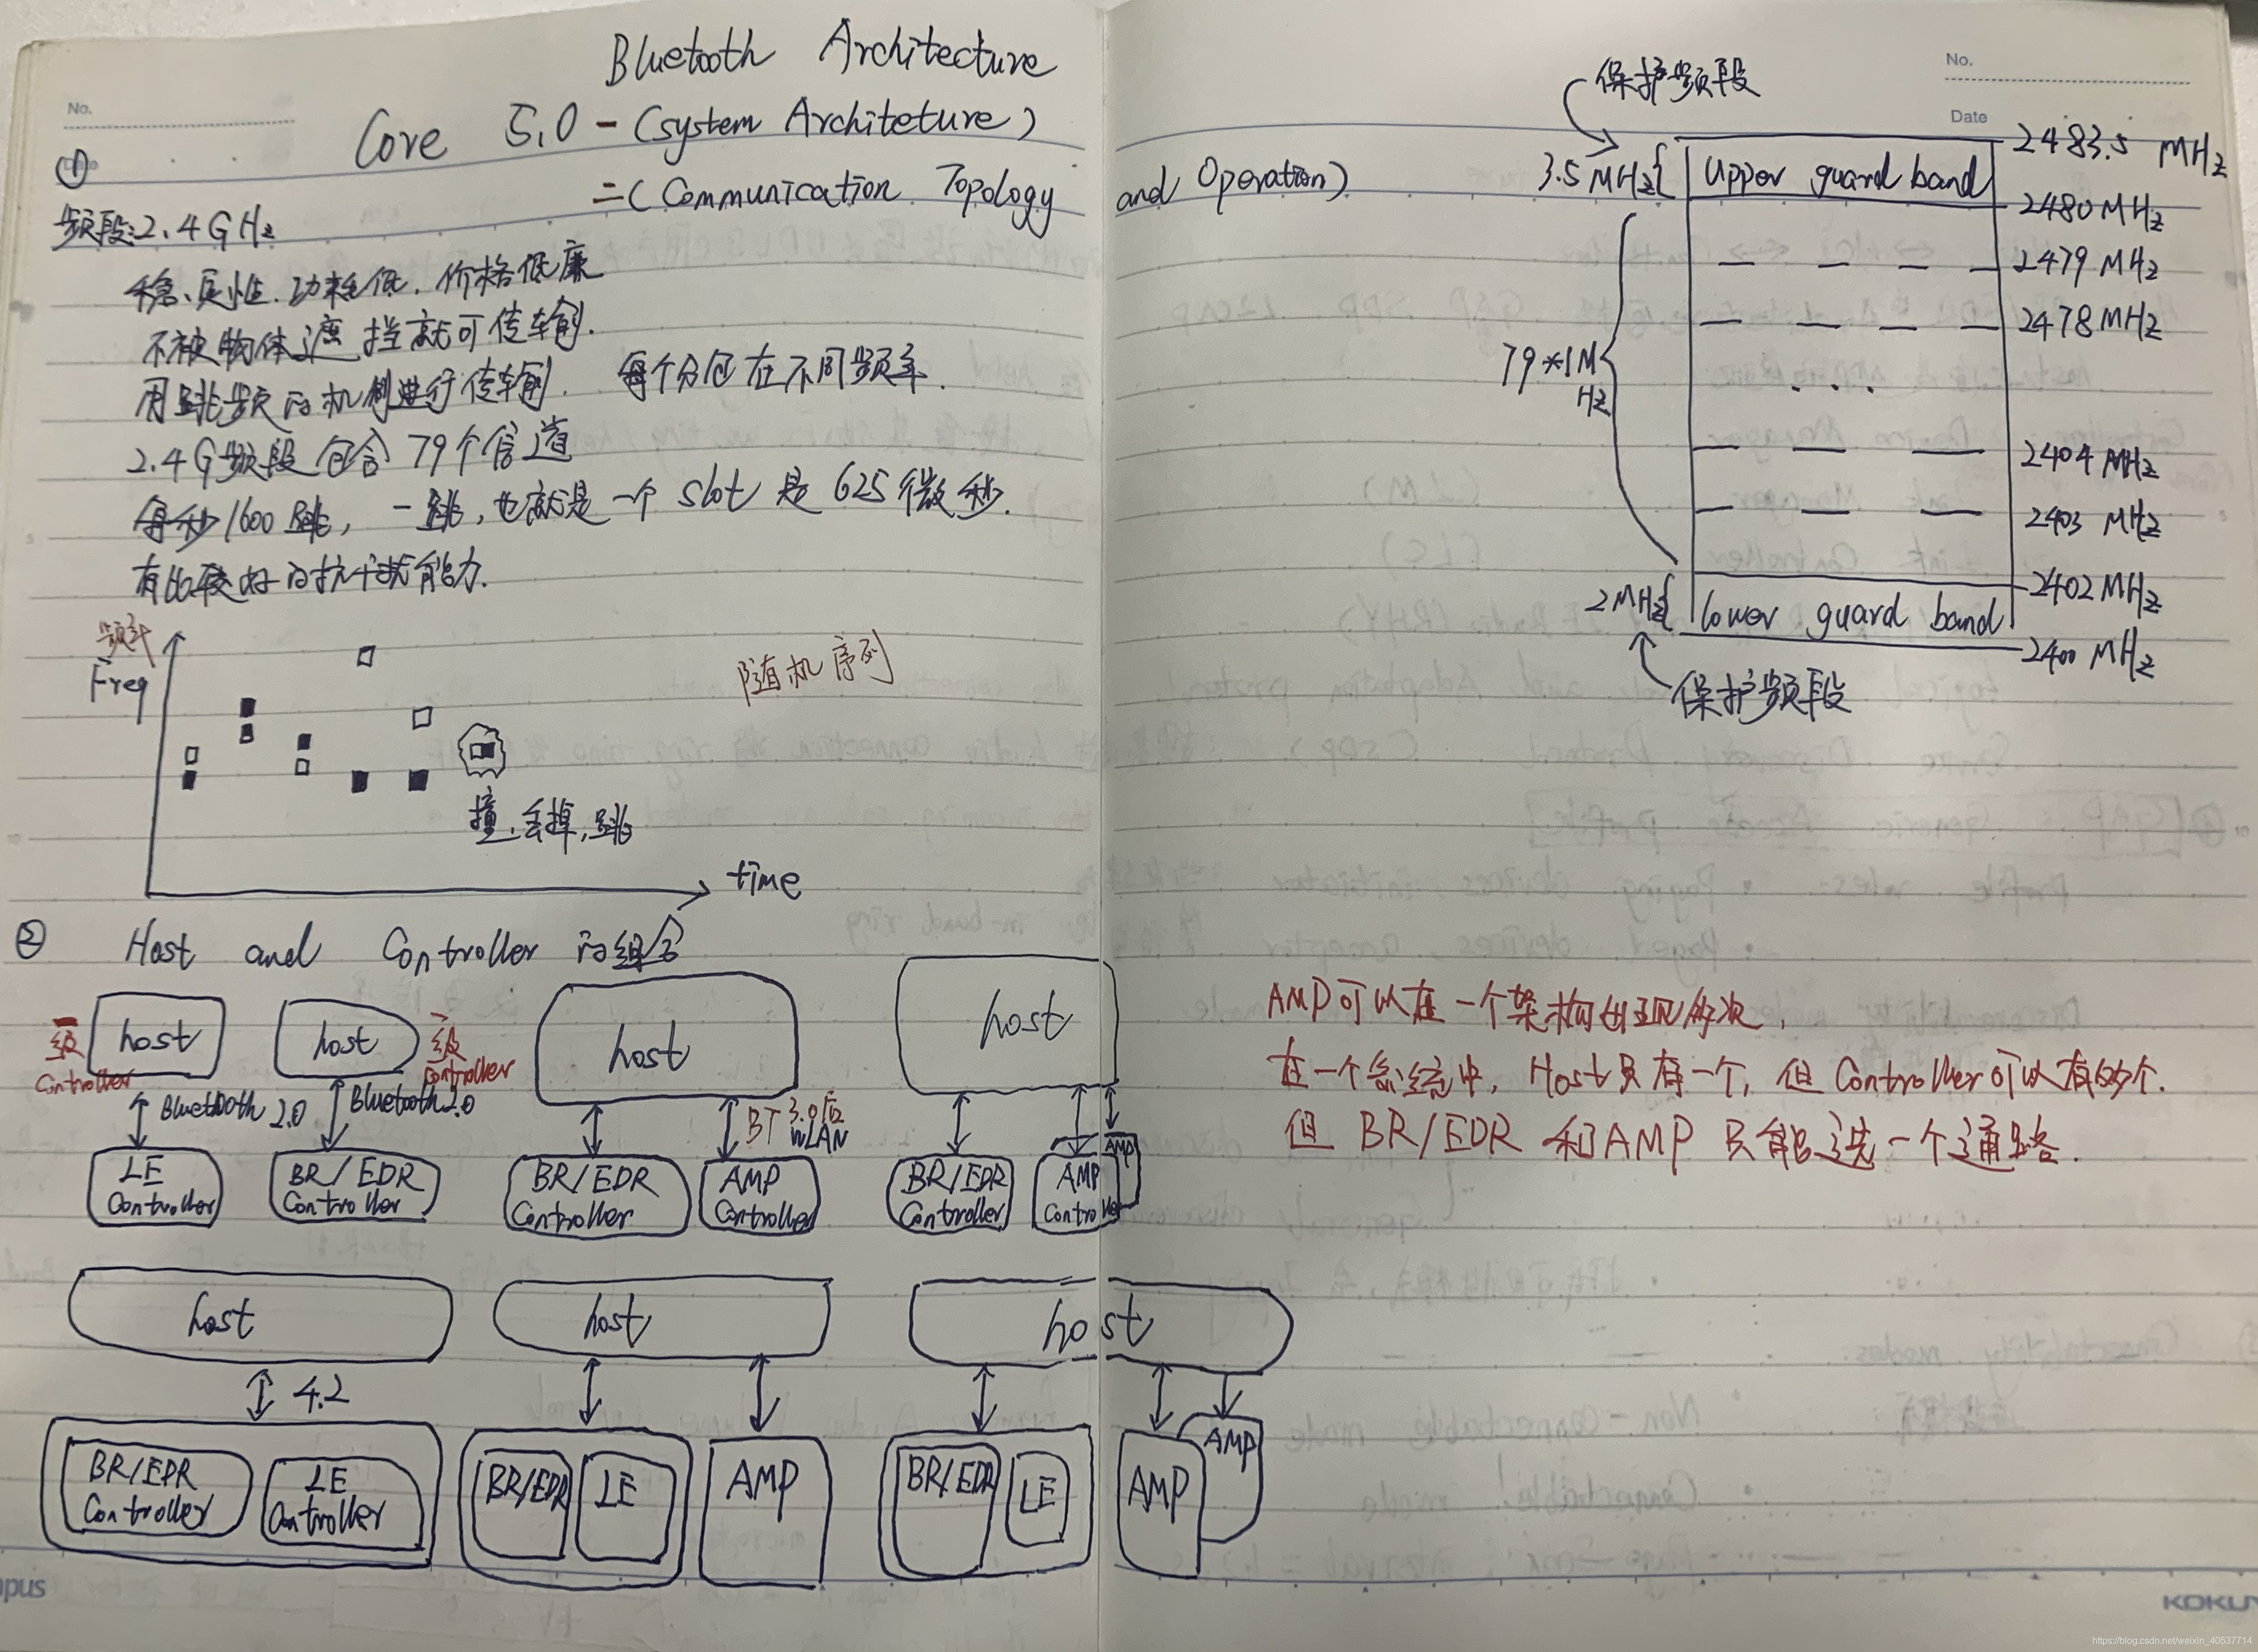 Bluetooth Architecture
Core 5.0 - (system Architeture)
=(Communication Topology and Operation)
No.
①
频段:2.4GHz
稳定性.功耗低.价格低廉
不被物体遮挡就可传输.
用跳频的机制进行传输. 每个分包在不同频率.
2.4G频段包含79个信道
每秒1600跳, 一跳,也就是一个slot是625微秒.
有比较好的抗干扰能力.
频率
Freq
随机序列
撞,丢掉,跳
time
No.
Date
保护频段
3.5MHz
Upper guard band
2483.5 MHz
2480MHz
2479 MHz
2478MHz
79*1M
Hz
...
2404 MHz
2403 MHz
2402MHz
2MHz
lower guard band
2400 MHz
保护频段
② Host and Controller的组合
host
host
host
host
一级
Controller
一级
Controller
Bluetooth 2.0
Bluetooth2.0
BT 3.0后
WLAN
LE
Controller
BR/EDR
Controller
BR/EDR
Controller
AMP
Controller
BR/EDR
Controller
AMP
Controller
AMP
AMP可以在一个架构出现多次,
在一个系统中, Host只有一个, 但Controller可以有多个.
但 BR/EDR 和AMP 只能选一个通路.
host
host
host
4.2
BR/EDR
Controller
LE
Controller
BR/EDR
LE
AMP
BR/EDR
LE
AMP
AMP
pus
KOKUY
https://blog.csdn.net/weixin_40537714